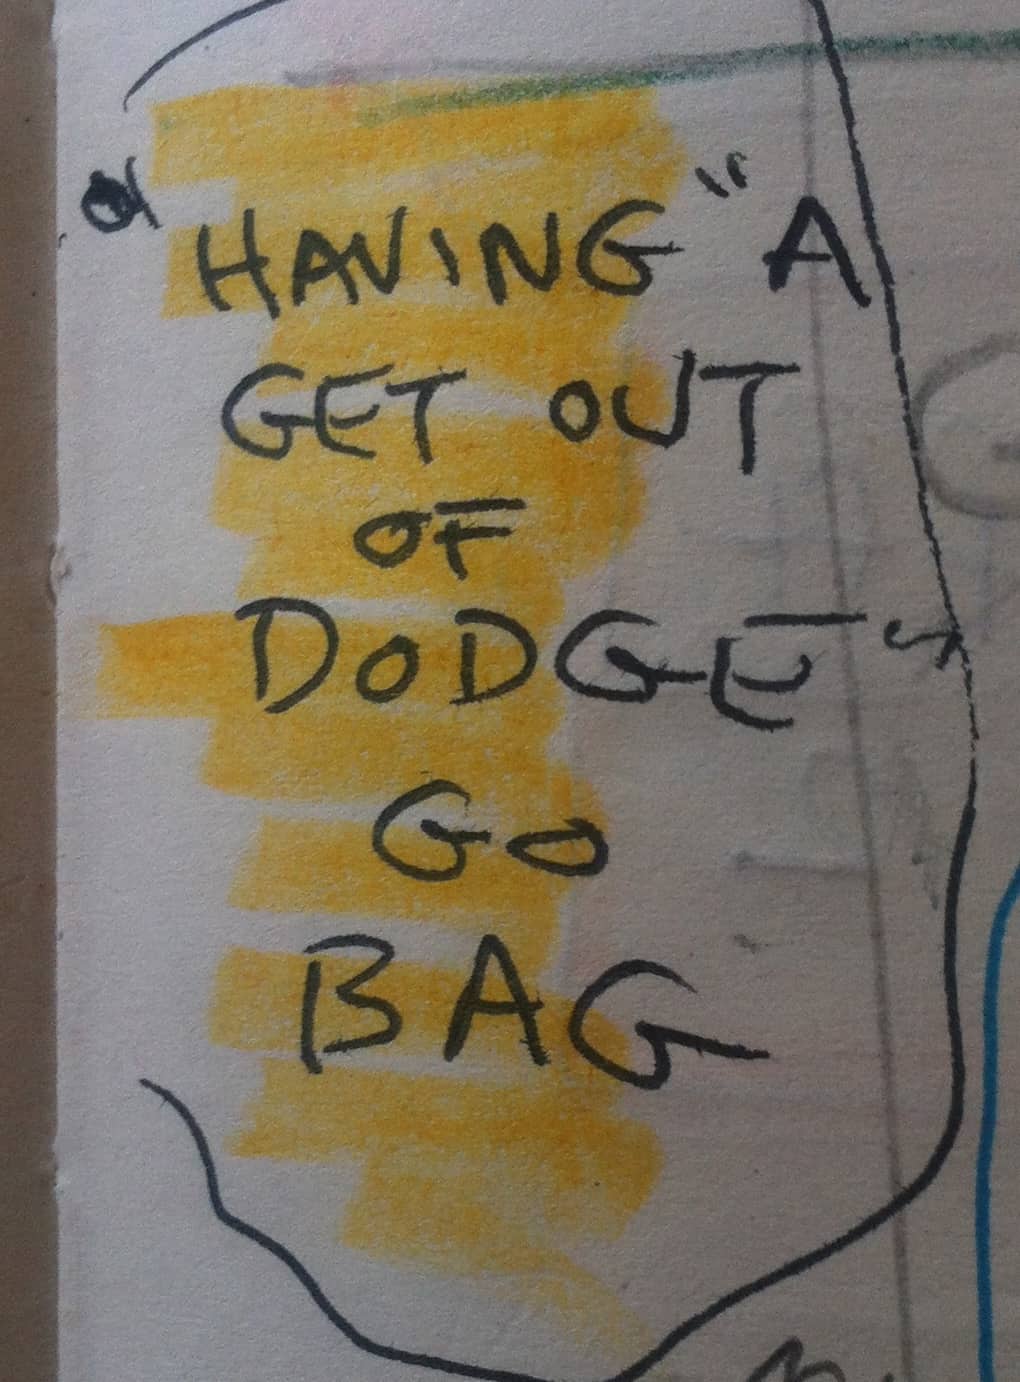 "HAVING" A
GET OUT
OF
DODGE"
GO
BAG